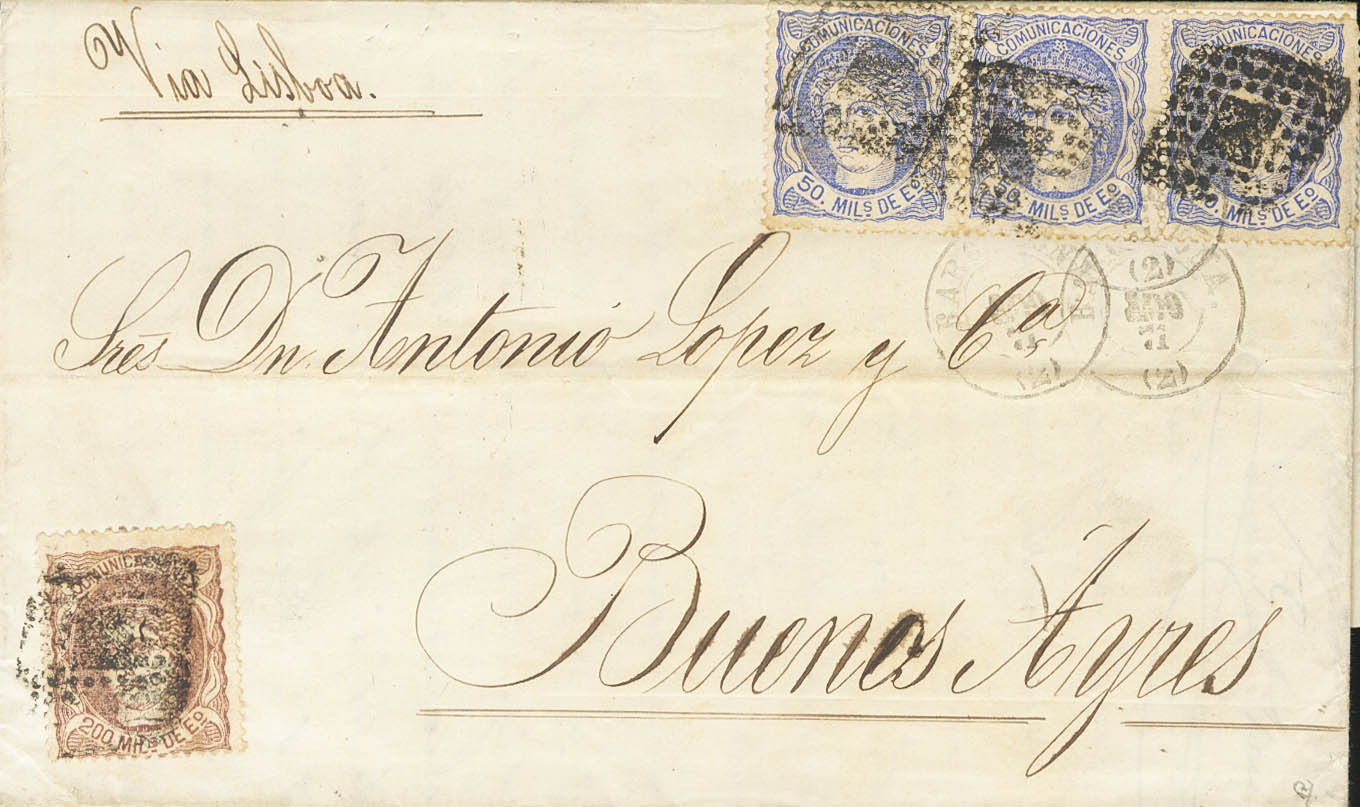 Via Lisboa.
COMUNICACIONES
50. MILS DE Eo
COMUNICACIONES
50. MILS DE Eo
COMUNICACIONES
50. MILS DE Eo
(2)
71
(2)
(2)
Sres Dn. Antonio Lopez y Ca
Buenos Ayres
COMUNICACIONES
200 MILS DE Eo